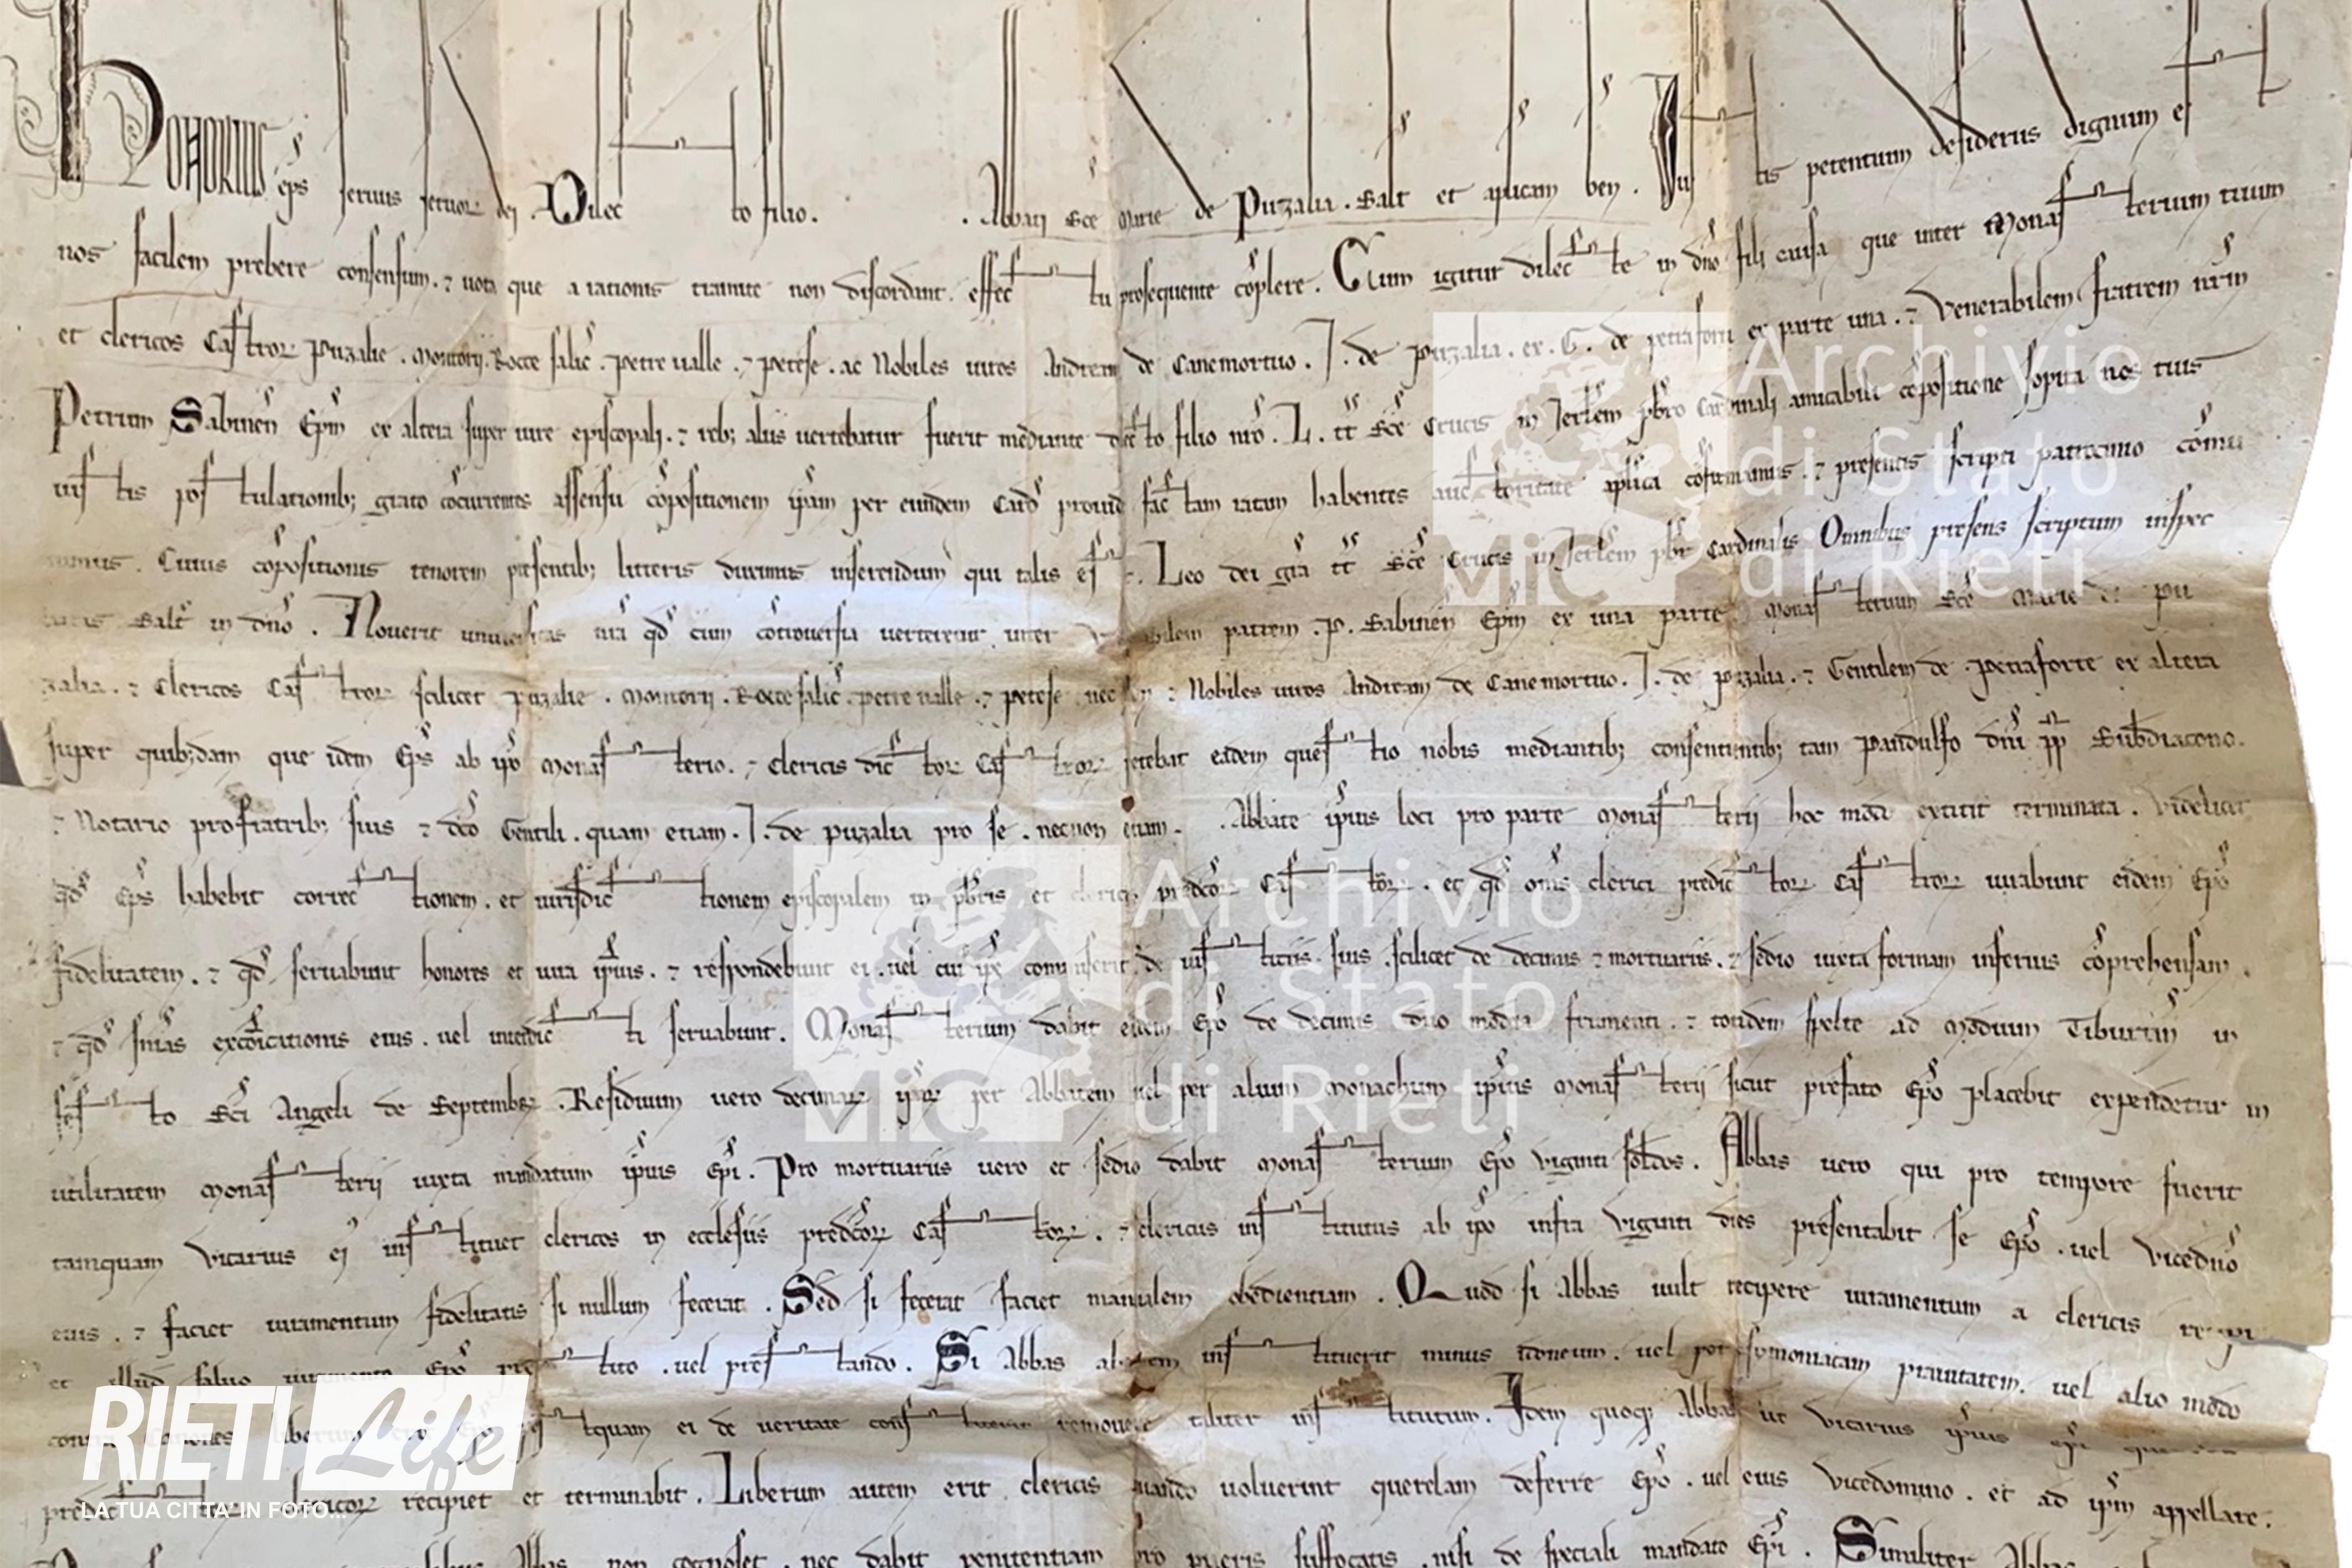 Honorius eps servus servor dei. Dilecto filio. . Abbati Sce Marie de Puzalia. Salt et aplicam ben. Justis petentium desideriis dignum est
nos facilem prebere consensum. ⁊ vota que a rationis tramite non discordant. effectu prosequente coplere. Cum igitur dilecte in dno fili causa que inter Monasterium tuum
et clericos Castror Puzalie. Montorij. Rocce salic. petre valle. ⁊ petese. ac Nobiles viros Andream de Canemortuo. J. de puzalia. ex. G. de petraforti ex parte una. ⁊ Venerabilem fratrem nrm
Petrum Sabinen Epm ex altera super iure episcopali. ⁊ reb; aliis vertebatur fuerit mediante dilecto filio nro. L. tt Sce Crucis in Jerlem pbro Cardinali amicabili copositione sopita nos tuis
iustis postulationib; grato cocurrentes assensu copositionem ipam per eundem Card provid factam ratam habentes auctoritate aplica cofirmamus. ⁊ presentis scripti patrocinio comu
nimus. Cuius copositionis tenorem presentib; litteris duximus inserendum qui talis est. Leo dei gra tt Sce Crucis in Jerlem pbr Cardinalis Omnibus presens scriptum inspec
turis Salt in dno. Noverit universitas vra qd cum cotroversia verteretur inter Venerabilem patrem. P. Sabinen Epm ex una parte Monasterium Sce Marie de pu
zalia. ⁊ Clericos Castror scilicet puzalie. Montorij. Rocce salic. petre valle. ⁊ petese nec non ⁊ Nobiles viros Andream de Canemortuo. J. de puzalia. ⁊ Gentilem de petraforte ex altera
super quib;dam que idem Eps ab ipo Monasterio. ⁊ clericis dictor Castror petebat eadem questio nobis mediantib; consentientib; tam pandulfo dni pp Subdiacono.
⁊ Notario pro fratrib; suis ⁊ dco Gentili. quam etiam. J. de puzalia pro se. necnon etiam. . Abbate ipius loci pro parte Monasterii hoc modo extitit terminata. Videlicet
qd Eps habebit correctionem. et iurisdictionem episcopalem in pbris et clericis predcor Castror. et qd oms clerici predictor Castror iurabunt eidem Epo
fidelitatem. ⁊ qd servabunt honores et iura ipius. ⁊ respondebunt ei. vel cui ipe commiserit de iustitiis suis. scilicet de decimis ⁊ mortuariis. ⁊ sedio iuxta formam inferius coprehensam.
⁊ qd snias excoicationis eius. vel interdicti servabunt. Monasterium dabit eidem Epo de decimis duo modia frumenti. ⁊ totidem spelte ad modium Tiburtin in
festo Sci Angeli de Septembr. Residuum vero decimar ipar per Abbatem vel per alium monachum ipius Monasterii sicut prefato Epo placebit expendetur in
utilitatem Monasterij iuxta mandatum ipius Epi. Pro mortuariis vero et sedio dabit Monasterium Epo viginti soldos. Abbas vero qui pro tempore fuerit
tamquam vicarius ei instituet clericos in ecclesiis predcor Castror. ⁊ clericus institutus ab ipo infra viginti dies presentabit se Epo. vel vicedno
eius. ⁊ faciet iuramentum fidelitatis si nullum fecerat. Sed si fecerat faciet manualem obedientiam. Quod si Abbas vult recipere iuramentum a clericis recipi
et illud salvo iuramento Epo prestito. vel prestando. Si Abbas autem instituerit minus idoneum. vel per symoniacam pravitatem. vel alio modo
contra Canones liberum postquam ei de veritate constiterit removere taliter institutum. Idem quoque Abbas ut vicarius ipius epi
predictor clericor recipiet et terminabit. Liberum autem erit clericis quando voluerint querelam deferre Epo. vel eius vicedomino. et ad ipm appellare.
Abbas non cognoscet. nec dabit penitentiam pro pueris suffocatis. nisi de speciali mandato Epi. Similiter Abbas
Archivio
di Stato
di Rieti
MiC
Archivio
di Stato
di Rieti
MiC
RIETI Life
LA TUA CITTA' IN FOTO...